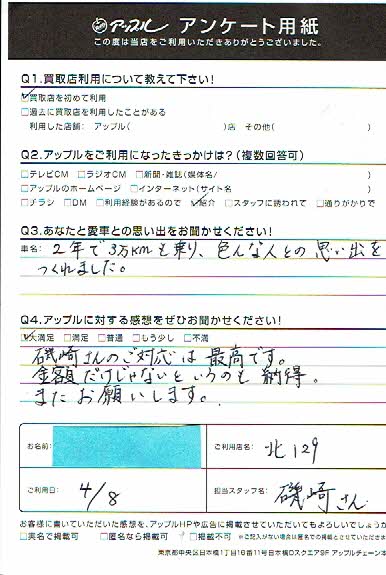 アップル アンケート用紙
この度は当店をご利用いただきありがとうございました。
Q1.買取店利用について教えて下さい!
☑買取店を初めて利用
□過去に買取店を利用したことがある
利用した店舗: アップル( )店 その他( )
Q2.アップルをご利用になったきっかけは?(複数回答可)
□テレビCM □ラジオCM □新聞・雑誌(媒体名/ )
□アップルのホームページ □インターネット(サイト名 )
□チラシ □DM □利用経験があるので ☑紹介 □スタッフに誘われて □通りがかりで
Q3.あなたと愛車との思い出をお聞かせください!
車名: 2年で3万kmも乗り、色んな人との思い出を
つくれました。
Q4.アップルに対する感想をぜひお聞かせください!
☑大満足 □満足 □普通 □もう少し □不満
磯崎さんのご対応は最高です。
金額だけじゃないというのも納得。
またお願いします。
お名前: ご利用店名: 北129
ご利用日: 4/8 担当スタッフ名: 磯崎さん
お客様に書いていただいた感想を、アップルHPや広告に掲載させていただいてもよろしいでしょうか
□実名で掲載可 □匿名なら掲載可 □掲載不可 ※ご記入がない場合は匿名での掲載とさせていただきま
東京都中央区日本橋1丁目16番11号日本橋Dスクエア9F アップルチェーン本